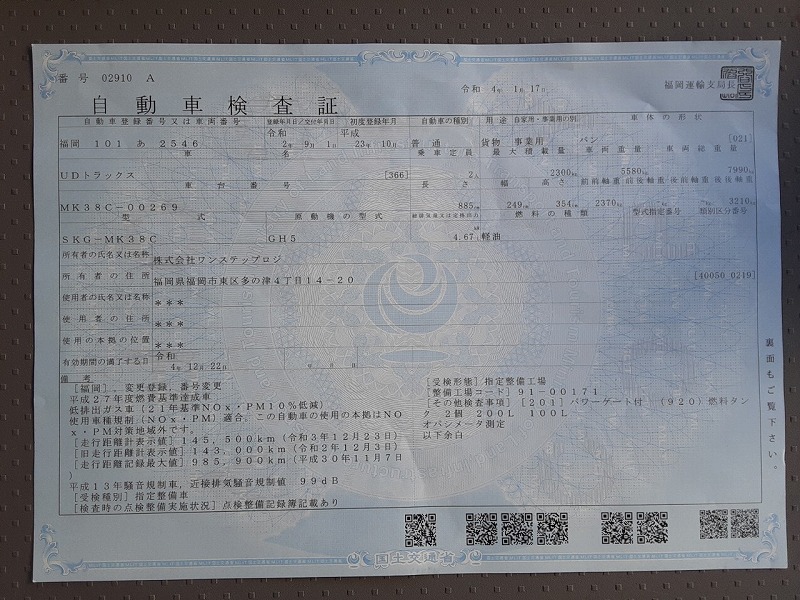 番号 02910 A
令和 4年 1月17日
福岡運輸支局長
自動車検査証
自動車登録番号又は車両番号 登録年月日/交付年月日 初度登録年月 自動車の種別 用途 自家用・事業用の別 車体の形状
福岡 101 あ 2546 令和 2年 9月 1日 平成 23年 10月 普通 貨物 事業用 バン [021]
車名 乗車定員 最大積載量 車両重量 車両総重量
UDトラックス [366] 2人 2300kg 5580kg 7990kg
車台番号 長さ 幅 高さ 前前軸重 前後軸重 後前軸重 後後軸重
MK38C-00269 885cm 249cm 354cm 2370kg -kg -kg 3210kg
型式 原動機の型式 総排気量又は定格出力 燃料の種類 型式指定番号 類別区分番号
SKG-MK38C GH5 4.67 軽油
所有者の氏名又は名称 株式会社ワンステップロジ
所有者の住所 福岡県福岡市東区多の津4丁目14-20 [40050 0219]
使用者の氏名又は名称 ***
使用者の住所 ***
使用の本拠の位置 ***
有効期間の満了する日 令和 4年 12月 22日
備考
[福岡], 変更登録, 番号変更
平成27年度燃費基準達成車
低排出ガス車(21年基準NOx・PM10%低減)
使用車種規制(NOx・PM)適合, この自動車の使用の本拠はNO
x・PM対策地域外です。
[走行距離計表示値] 145,500km(令和3年12月23日)
[旧走行距離計表示値] 143,000km(令和2年12月3日)
[走行距離記録最大値] 985,900km(平成30年11月7日
)
平成13年騒音規制車, 近接排気騒音規制値 99dB
[受検種別] 指定整備車
[検査時の点検整備実施状況] 点検整備記録簿記載あり
[受検形態] 指定整備工場
[整備工場コード] 91-00171
[その他検査事項] [201] パワーゲート付 (920) 燃料タン
ク 2個 200L 100L
オパシメータ測定
以下余白
裏面もご覧下さい。
国土交通省